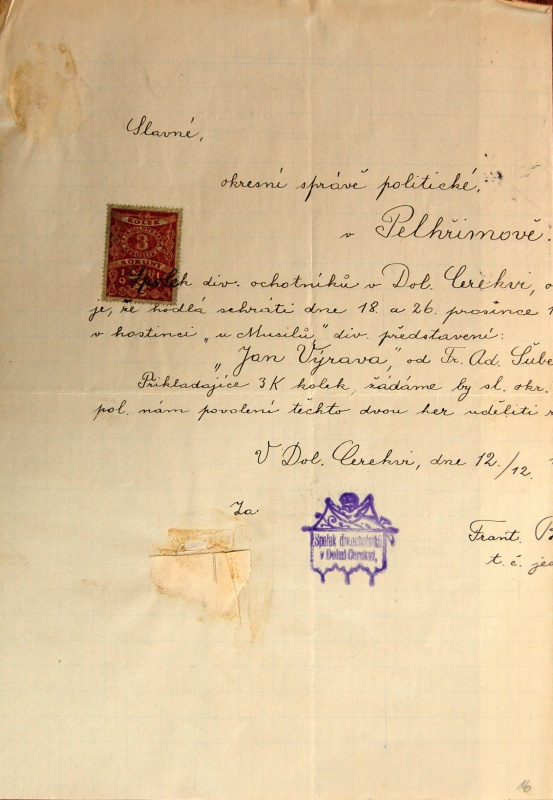 Slavné,
okresní správě politické,
v Pelhřimově.
KOLEK
3
KORUNY
Spolek div. ochotníků v Dol. Cerekvi, o
je, že hodlá sehráti dne 18. a 26. prosince 1
v hostinci „u Musilů", div. představení:
„Jan Výrava", od Fr. Ad. Šube
Přikladajíce 3 K kolek, žádáme by sl. okr.
pol. nám povolení těchto dvou her uděliti
V Dol. Cerekvi, dne 12./12.
Za
Spolek divochotníků
v Dolní Cerekvi,
Frant.
t. č. jed
16